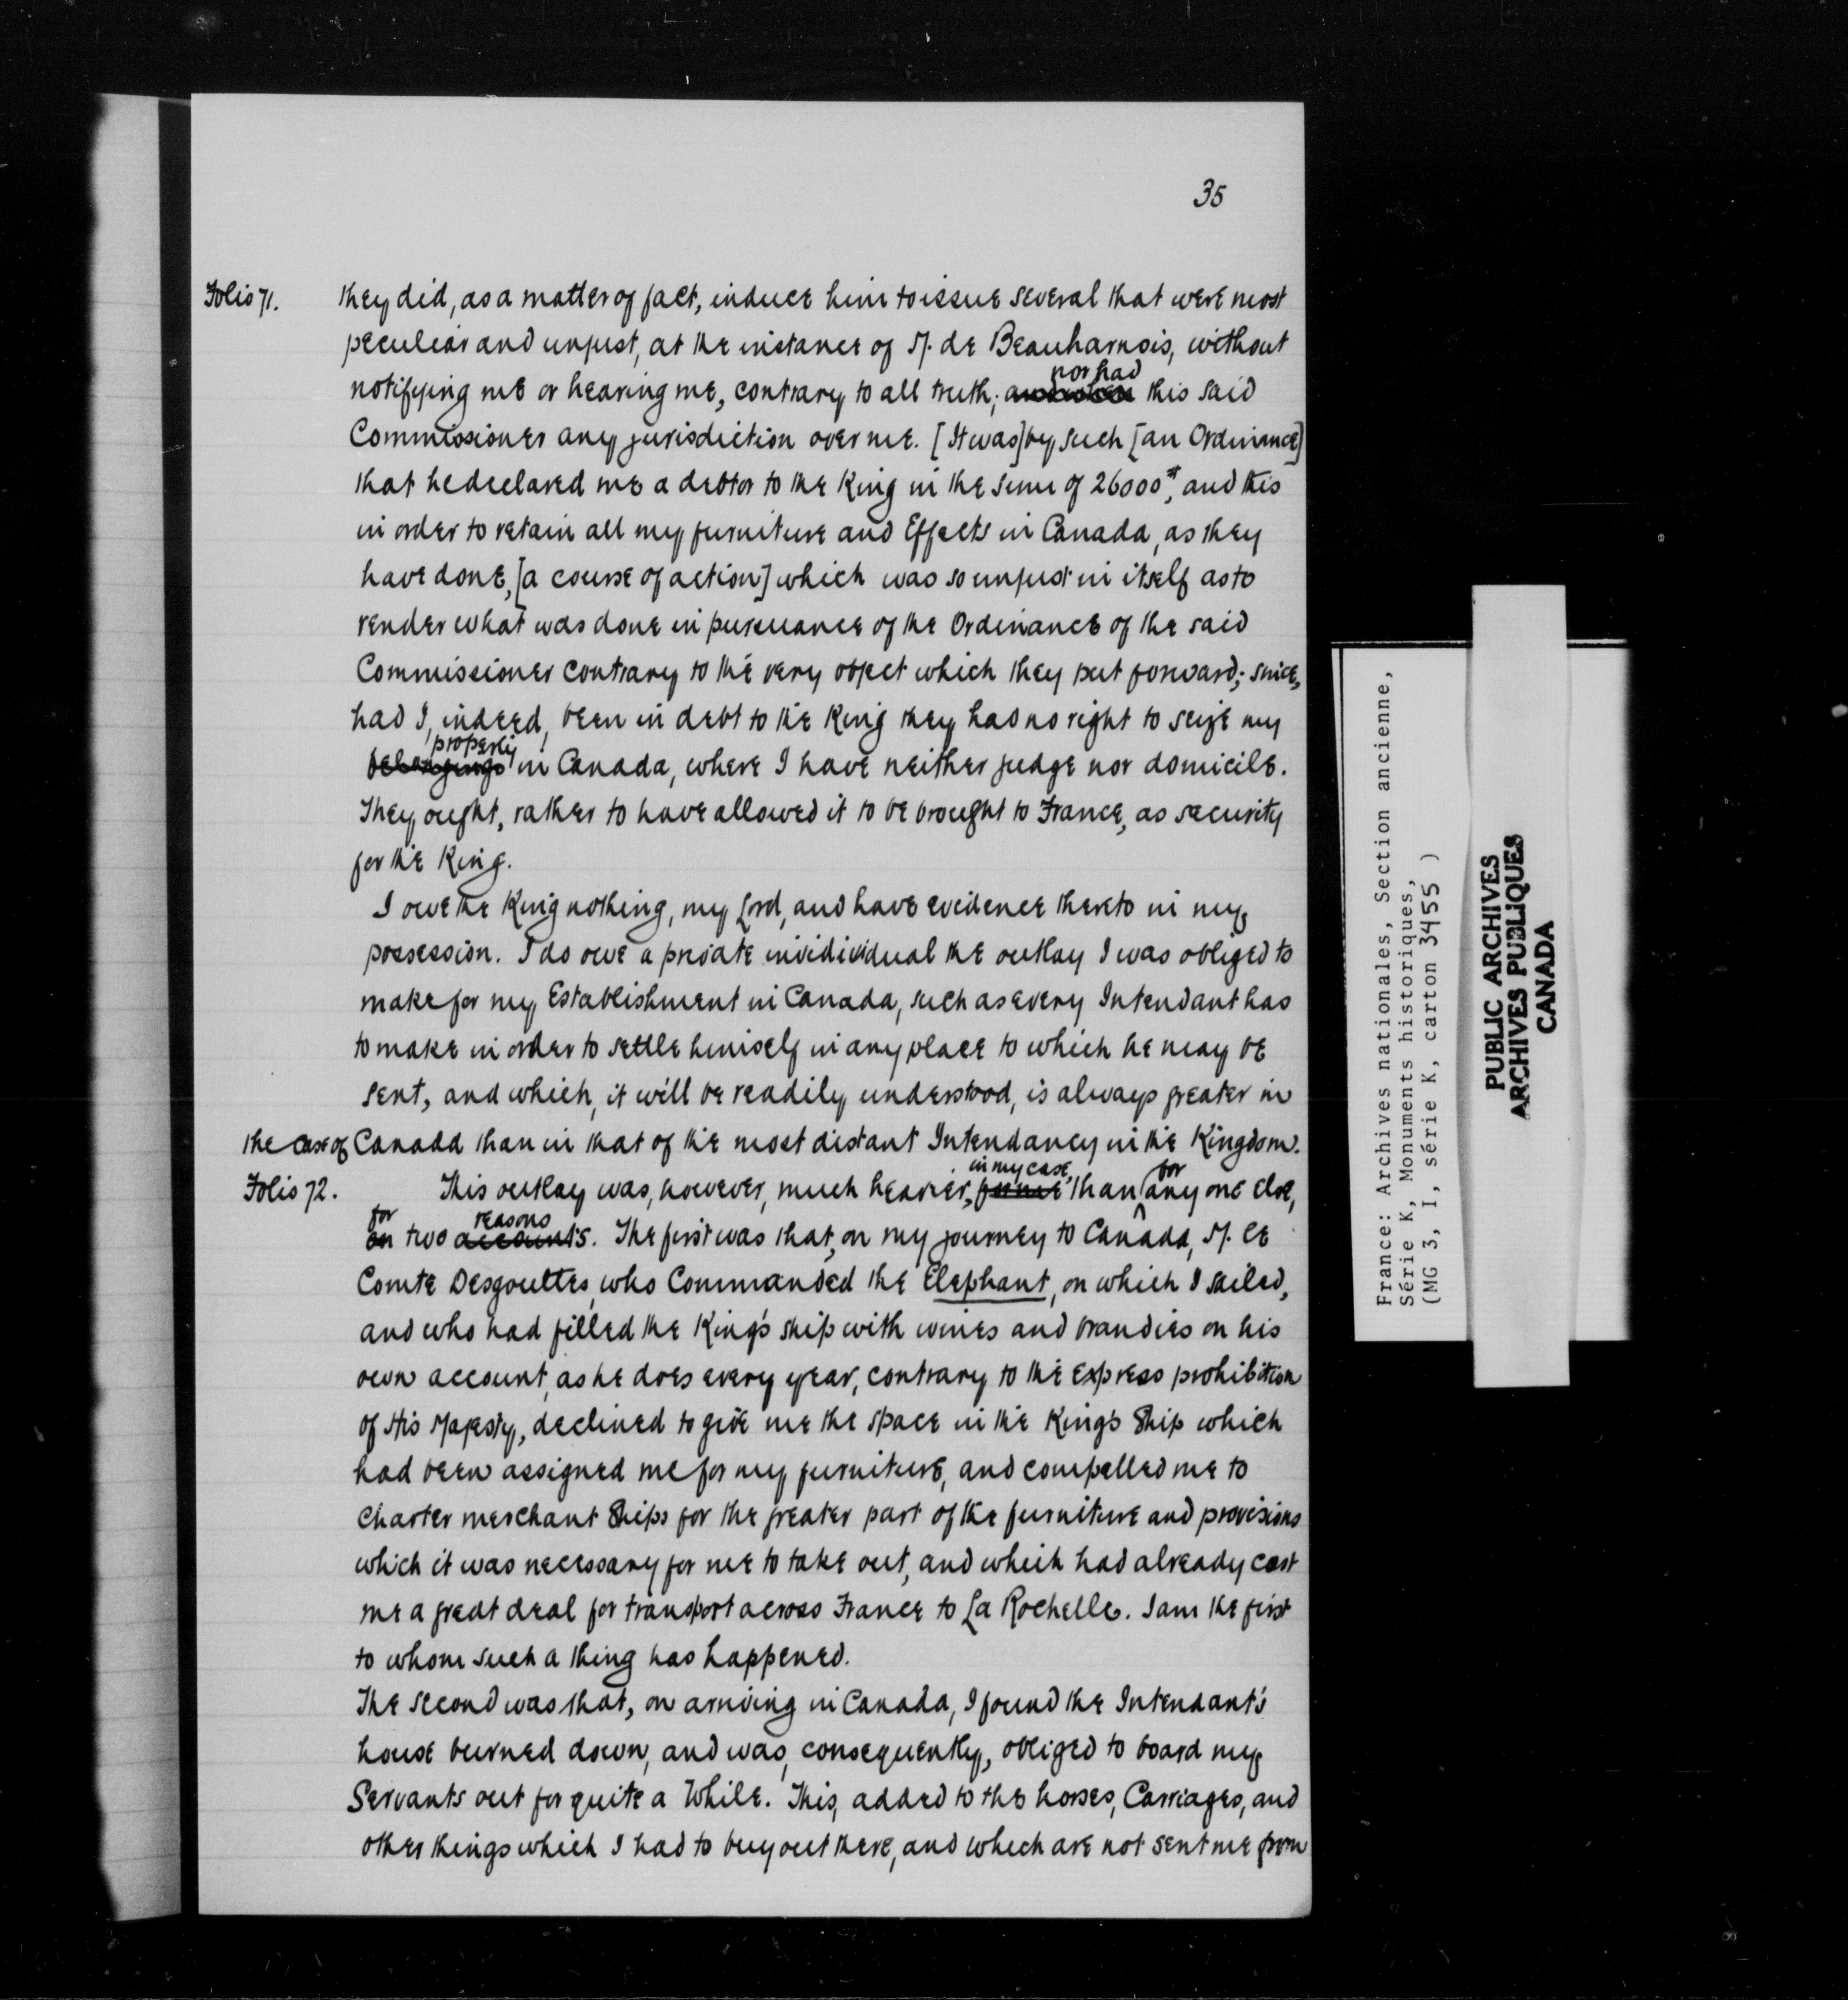 35
Folio 71. they did, as a matter of fact, induce him to issue several that were most
peculiar and unjust, at the instance of M. de Beauharnois, without
notifying me or hearing me, contrary to all truth; nor had this said
Commissioner any jurisdiction over me. [It was] by such [an Ordinance]
that he declared me a debtor to the King in the sum of 26000#, and this
in order to retain all my furniture and Effects in Canada, as they
have done, [a course of action] which was so unjust in itself as to
render what was done in pursuance of the Ordinance of the said
Commissioner contrary to the very object which they put forward; since,
had I, indeed, been in debt to the King they had no right to seize my
belongings property in Canada, where I have neither judge nor domicile.
They ought, rather to have allowed it to be brought to France, as security
for the King.
I owe the King nothing, my Lord, and have evidence thereto in my
possession. I do owe a private invididual the outlay I was obliged to
make for my Establishment in Canada, such as every Intendant has
to make in order to settle himself in any place to which he may be
sent, and which, it will be readily understood, is always greater in
the case of Canada than in that of the most distant Intendancy in the Kingdom.
Folio 72. This outlay was, however, much heavier, in my case, for me than for any one else,
for on two reasons accounts. The first was that, on my journey to Canada, M. le
Comte Desgouttes, who Commanded the Elephant, on which I sailed,
and who had filled the King's ship with wines and brandies on his
own account, as he does every year, contrary to the express prohibition
of His Majesty, declined to give me the space in the King's Ship which
had been assigned me for my furniture, and compelled me to
charter merchant Ships for the greater part of the furniture and provisions
which it was necessary for me to take out, and which had already cost
me a great deal for transport across France to La Rochelle. I am the first
to whom such a thing has happened.
The second was that, on arriving in Canada, I found the Intendant's
house burned down, and was, consequently, obliged to board my
Servants out for quite a while. This, added to the horses, Carriages, and
other things which I had to buy out there, and which are not sent me from
France: Archives nationales, Section ancienne,
Série K, Monuments historiques,
(MG 3, I, série K, carton 3455 )
PUBLIC ARCHIVES
ARCHIVES PUBLIQUES
CANADA